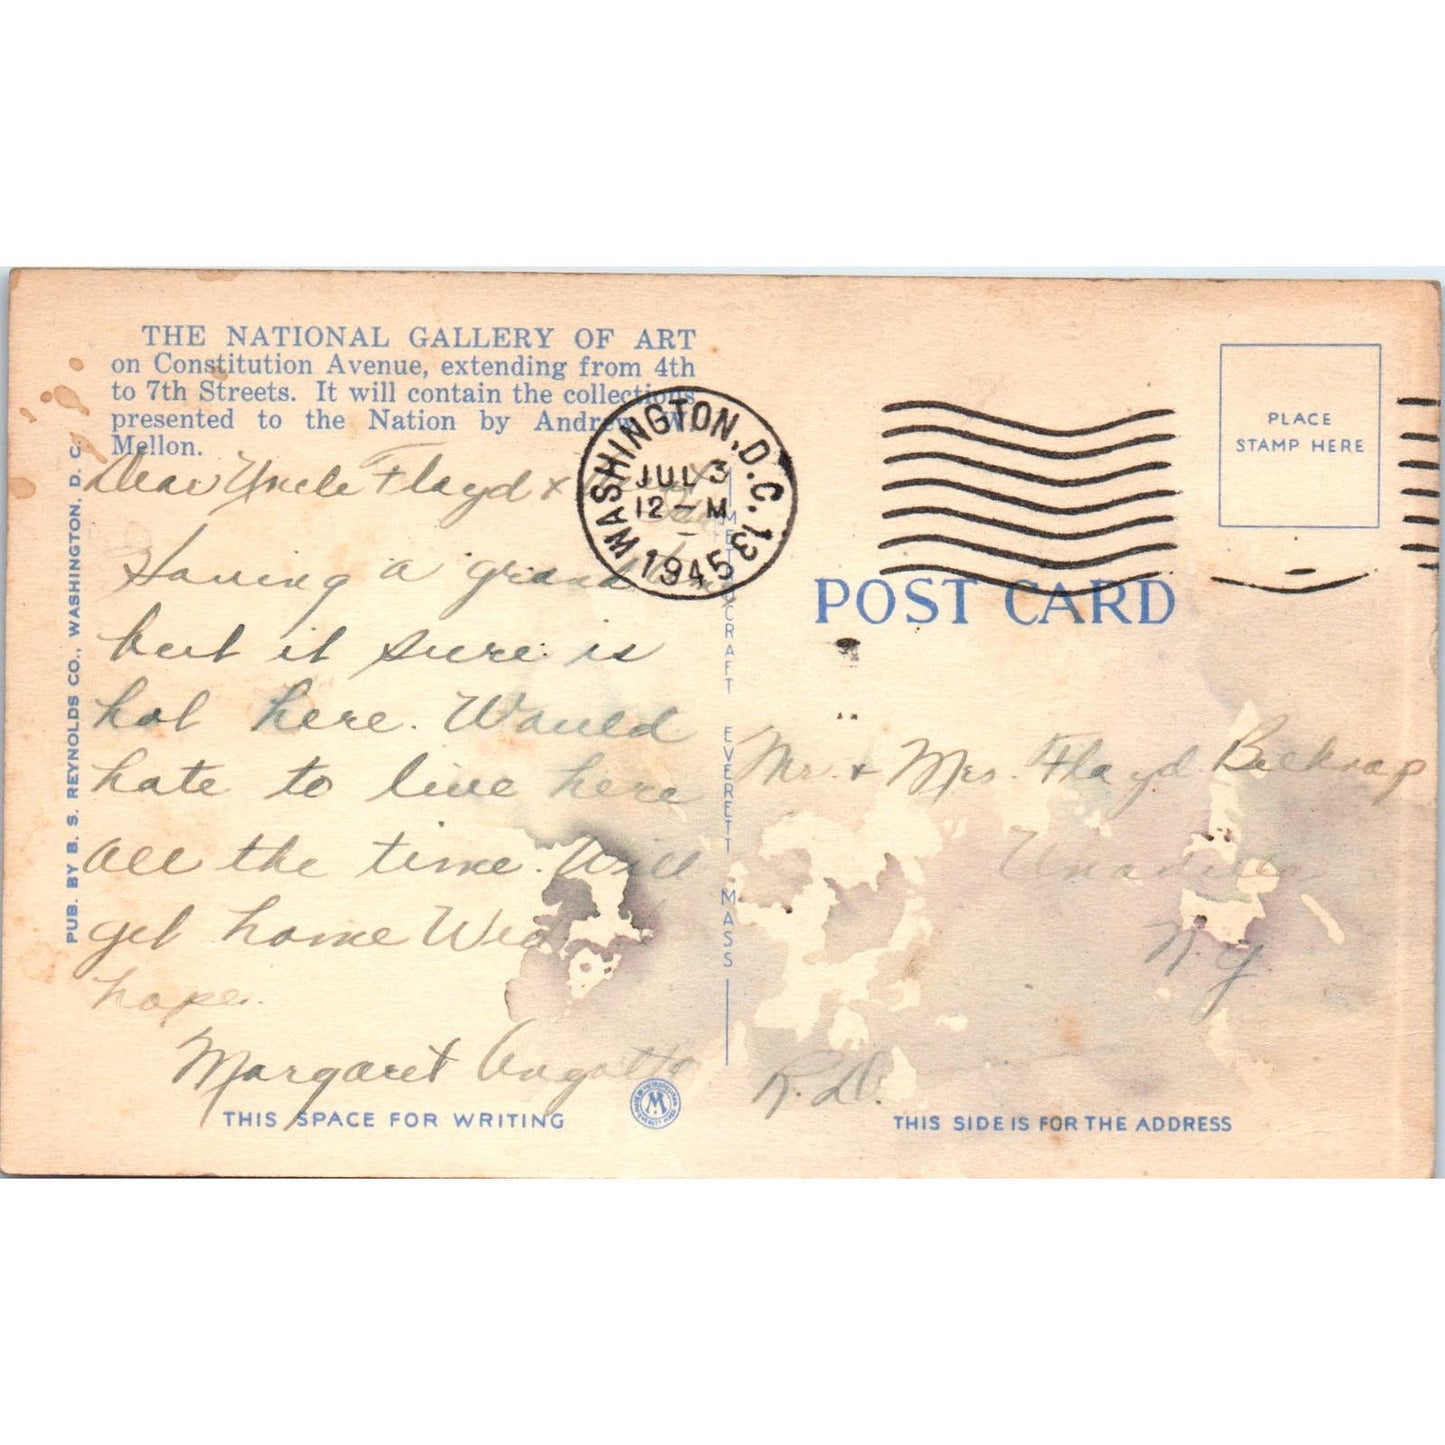 THE NATIONAL GALLERY OF ART
on Constitution Avenue, extending from 4th
to 7th Streets. It will contain the collections
presented to the Nation by Andrew W.
Mellon.
PUB. BY B. S. REYNOLDS CO., WASHINGTON, D. C.
Dear Uncle Floyd +
Having a grand time
but it sure is
hot here. Would
hate to live here
all the time. Will
get home Wed
hope.
Margaret
THIS SPACE FOR WRITING
WASHINGTON, D.C. 13
JUL 3
12 - M
1945
METROCRAFT EVERETT MASS
M
PLACE
STAMP HERE
POST CARD
Mr. + Mrs. Floyd Belknap
Unadilla
N.Y.
R.D.
THIS SIDE IS FOR THE ADDRESS